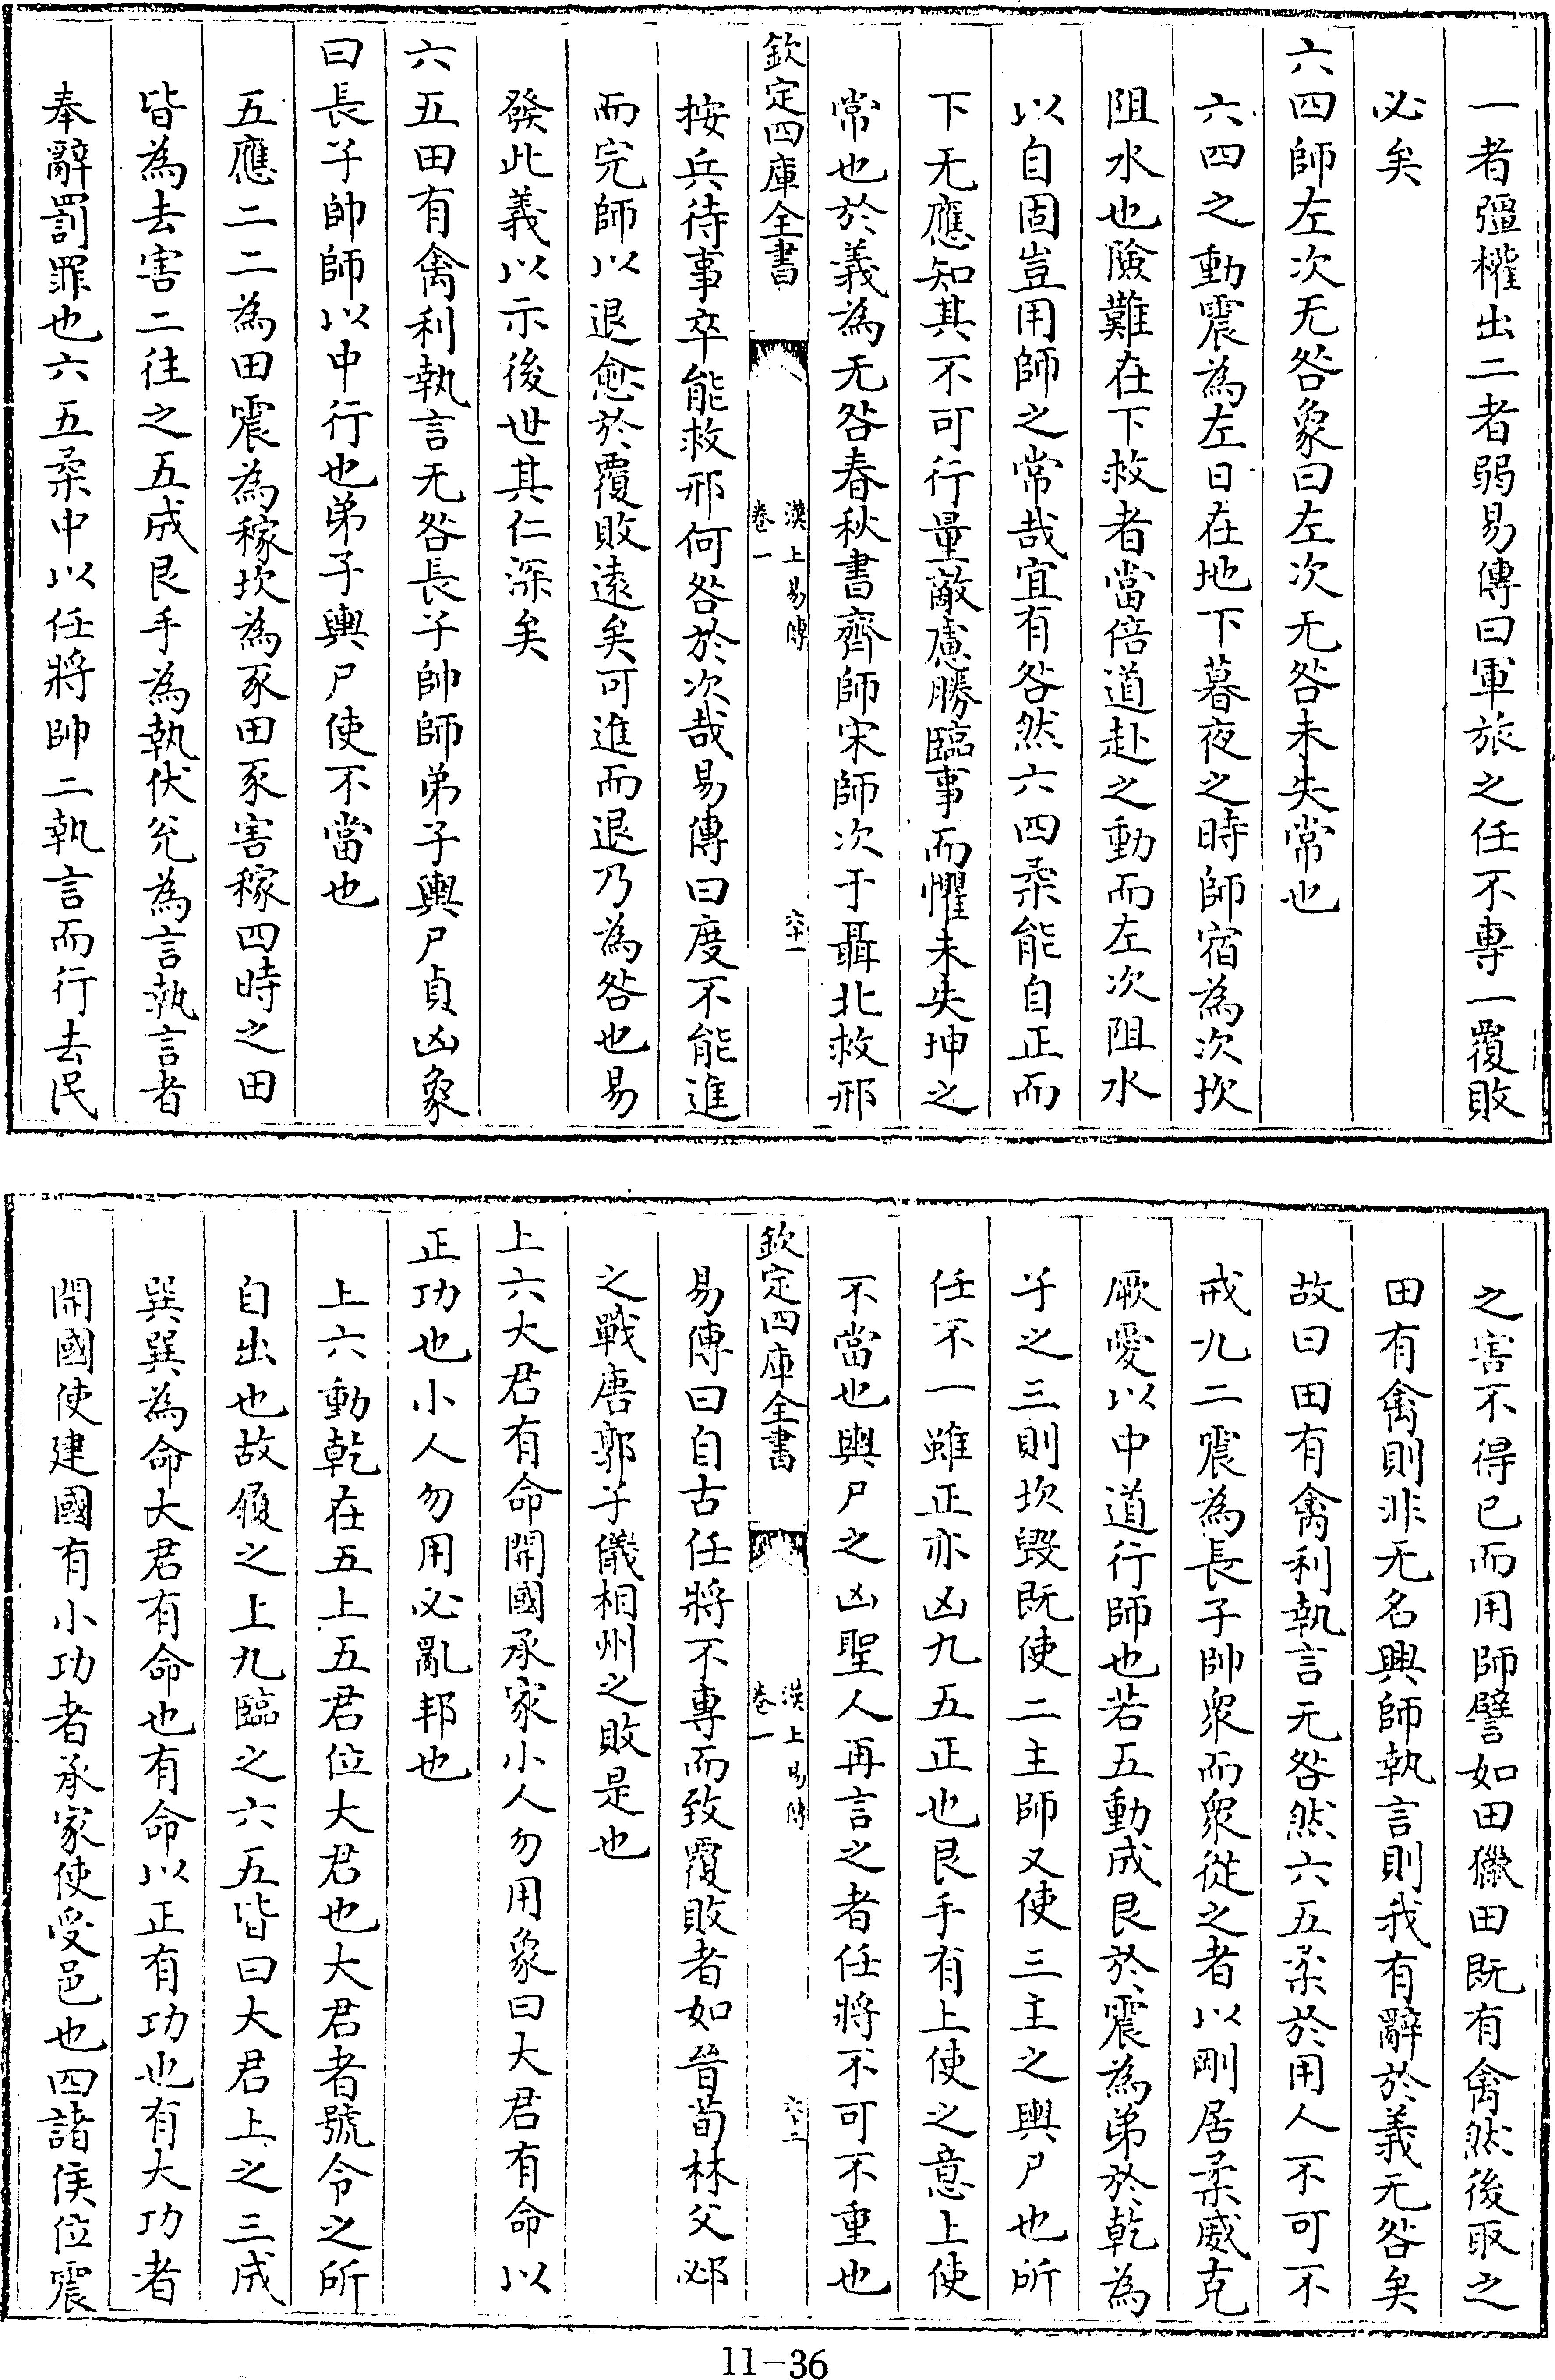 一者彊權出二者弱易傳曰軍旅之任不專一覆敗
必矣
六四師左次无咎象曰左次无咎未失常也
六四之動震為左日在地下暮夜之時師宿為次坎
阻水也險難在下救者當倍道赴之動而左次阻水
以自固豈用師之常哉宜有咎然六四柔能自正而
下无應知其不可行量敵慮勝臨事而懼未失坤之
常也於義為无咎春秋書齊師宋師次于聶北救邢
欽定四庫全書
漢上易傳
卷一
六十一
按兵待事卒能救邢何咎於次哉易傳曰度不能進
而完師以退愈於覆敗遠矣可進而退乃為咎也易
發此義以示後世其仁深矣
六五田有禽利執言无咎長子帥師弟子輿尸貞凶象
曰長子帥師以中行也弟子輿尸使不當也
五應二二為田震為稼坎為豕田豕害稼四時之田
皆為去害二往之五成艮手為執伏兊為言執言者
奉辭罰罪也六五柔中以任將帥二執言而行去民
之害不得已而用師譬如田獵田既有禽然後取之
田有禽則非无名興師執言則我有辭於義无咎矣
故曰田有禽利執言无咎然六五柔於用人不可不
戒九二震為長子帥衆而衆從之者以剛居柔威克
厥愛以中道行師也若五動成艮於震為弟於乾為
子之三則坎毀既使二主師又使三主之輿尸也所
任不一雖正亦凶九五正也艮手有上使之意上使
不當也輿尸之凶聖人再言之者任將不可不重也
欽定四庫全書
漢上易傳
卷一
六十二
易傳曰自古任將不專而致覆敗者如晉荀林父邲
之戰唐郭子儀相州之敗是也
上六大君有命開國承家小人勿用象曰大君有命以
正功也小人勿用必亂邦也
上六動乾在五上五君位大君也大君者號令之所
自出也故履之上九臨之六五皆曰大君上之三成
巽巽為命大君有命也有命以正有功也有大功者
開國使建國有小功者承家使受邑也四諸侯位震
11-36